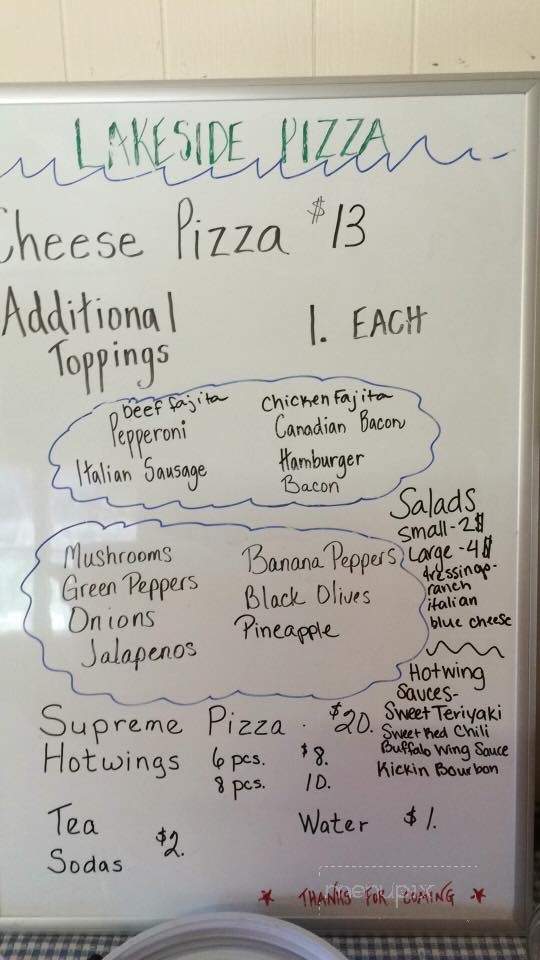 LAKESIDE PIZZA
Cheese Pizza $13
Additional Toppings 1. EACH
beef fajita
Pepperoni
Italian Sausage
Chicken Fajita
Canadian Bacon
Hamburger
Bacon
Mushrooms
Green Peppers
Onions
Jalapenos
Banana Peppers
Black Olives
Pineapple
Salads
small - 2$
Large - 4$
dressings-
ranch
italian
blue cheese
Hotwing
Sauces-
Sweet Teriyaki
Sweet Red Chili
Buffalo Wing Sauce
Kickin Bourbon
Supreme Pizza . $20.
Hotwings 6 pcs. $8.
8 pcs. 10.
Tea
Sodas
$2.
Water $1.
menupix
* THANKS FOR COMING *